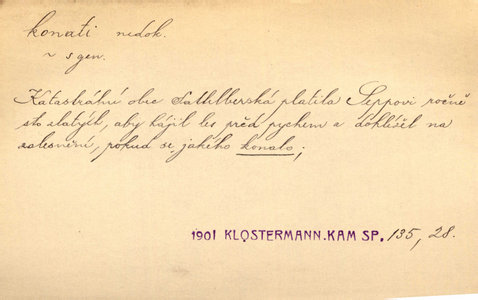 konati nedok.
~ s gen.
Katastrální obec Sattelberská platila Seppovi ročně
sto zlatých, aby hájil les před pychem a dohlížel na
zalesnění, pokud se jakého konalo;
1901 KLOSTERMANN.KAM SP. 135, 28.